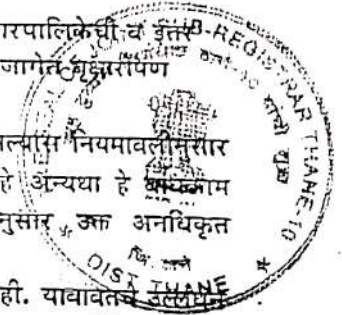 रपालिकेची व इतर
जागेत वृक्षारोपण
ल्यास नियमावलीनुसार
हे अन्यथा हे बांधकाम
नुसार उक्त अनधिकृत
ही. याबाबतचे उल्लंघन
SUB-REGISTRAR THANE-10
DIST. THANE